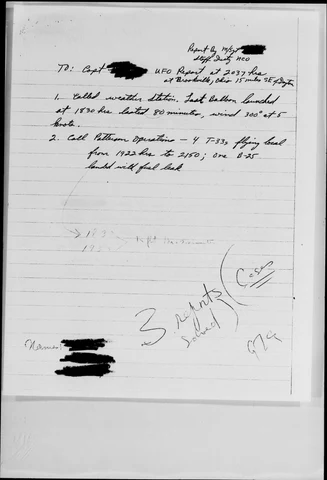 Report by M/Sgt
Staff Duty NCO
To: Capt UFO Report at 2037 hrs
at Brookville, Ohio 15 miles SE of Dayton
1. Called weather station. Last Balloon launched
at 1830 hrs lasted 80 minutes, wind 300° at 5
knots
2. Call Patterson Operations - 4 T-33s flying local
from 1922 hrs to 2150; one B-25
landed with fuel leak
3 reports
solved
(Case
Names